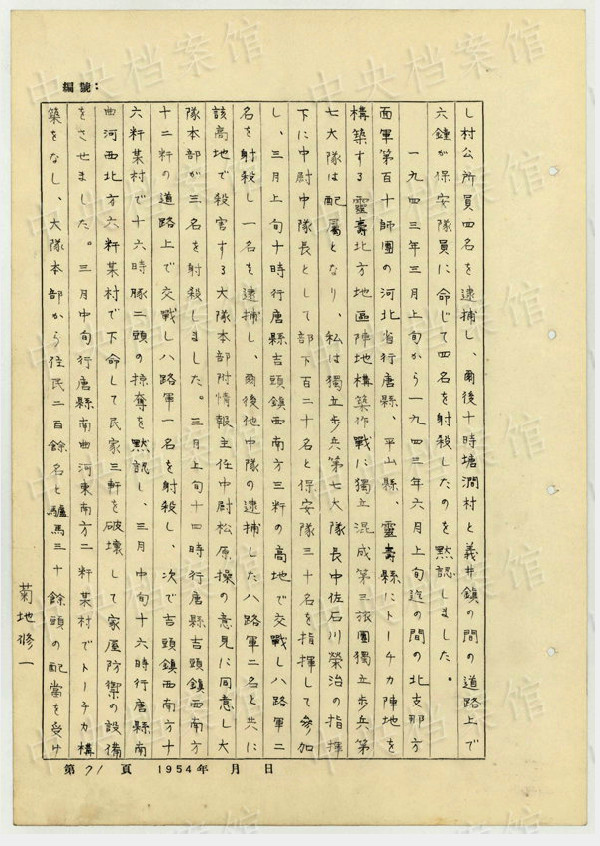 編號：
し村公所員四名を逮捕し、爾後十時塘澗村と義井鎮の間の道路上で
六鐘が保安隊員に命じて四名を射殺したのを黙認しました。
一九四三年三月上旬から一九四三年六月上旬迄の間の北支那方
面軍第百十師團の河北省行唐縣、平山縣、靈壽縣にトーチカ陣地を
構築する靈壽北方地區陣地構築作戰に獨立混成第三旅團獨立步兵第
七大隊は配屬となり、私は獨立步兵第七大隊長中佐石川榮治の指揮
下に中尉中隊長として部下百二十名と保安隊三十名を指揮して参加
し、三月上旬十時行唐縣吉頭鎮西南方三粁の高地で交戰し八路軍二
名を射殺し一名を逮捕し、爾後他中隊の逮捕した八路軍二名と共に
該高地で殺害する大隊本部附情報主任中尉松原操の意見に同意し大
隊本部が三名を射殺しました。三月上旬十四時行唐縣吉頭鎮西南方
十二粁の道路上で交戰し八路軍一名を射殺し、次で吉頭鎮西南方十
六粁某村で十六時豚二頭の掠奪を黙認し、三月中旬十六時行唐縣南
曲河西北方六粁某村で下命して民家三軒を破壞して家屋防禦の設備
をさせました。三月中旬行唐縣南曲河東南方二粁某村でトーチカ構
築をなし、大隊本部から住民二百餘名と驢馬三十餘頭の配當を受け
菊地修一
第71頁 1954年 月 日
中央档案馆